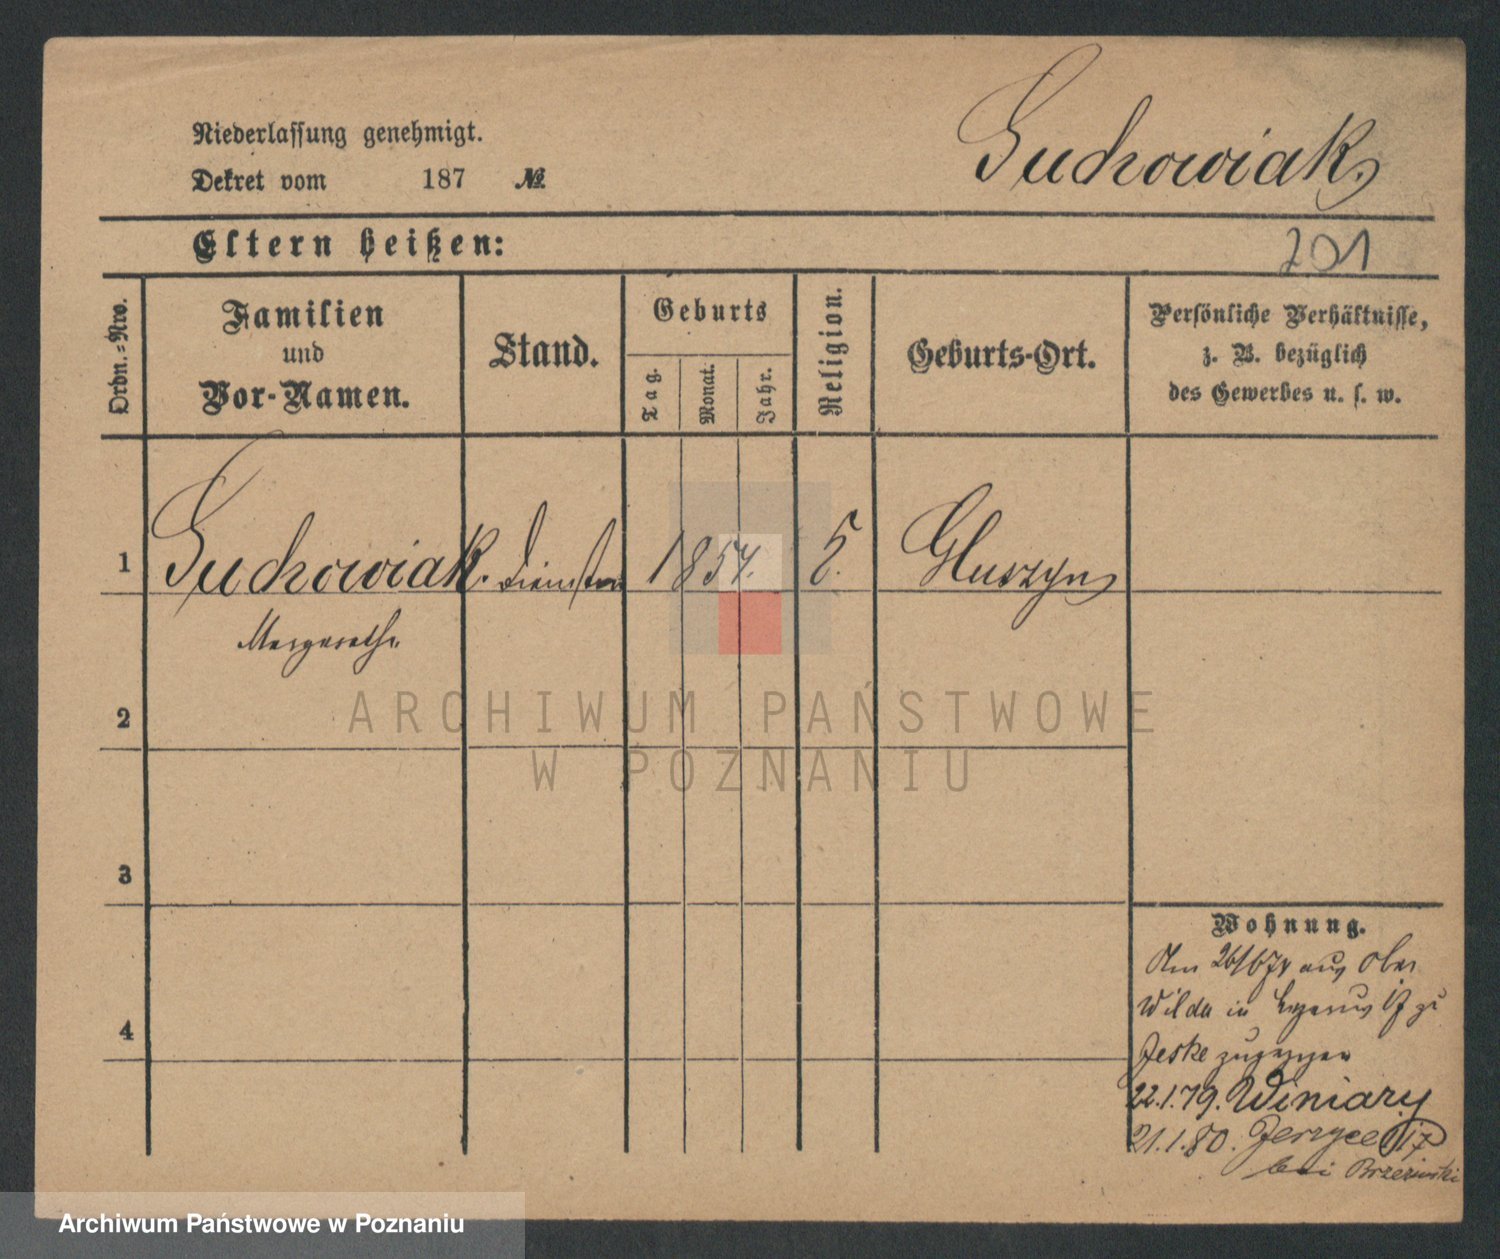 Niederlassung genehmigt.
Dekret vom 187 №
Suchowiak
Eltern heißen:
201
Ordn.-Nro.
Familien
und
Vor-Namen.
Stand.
Geburts
Tag.
Monat.
Jahr.
Religion.
Geburts-Ort.
Persönliche Verhältnisse,
z. B. bezüglich
des Gewerbes u. s. w.
1
Suchowiak. 1854. Gluszyn
Margarethe
2
3
4
Wohnung.
Am aus Ober
Wilda in Lazarus 17 zu
Jeske zugezogen
22.1.79. Winiary
21.1.80. Jerzyce 117
bei Brzezinski
ARCHIWUM PAŃSTWOWE
W POZNANIU
Archiwum Państwowe w Poznaniu